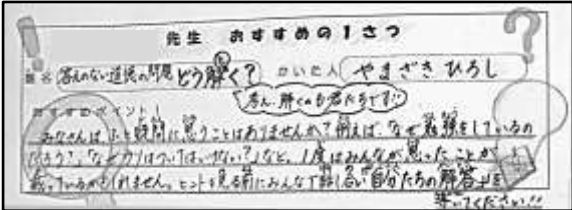 先生 おすすめの1さつ
題名 答えのない道徳の問題 どう解く? かいた人 やまざき ひろし
答え、解くのも君たちです!!
おすすめポイント!
みなさんは、ふと疑問に思うことはありませんか?例えば、なぜ勉強をしているの
だろう?、なぜウソはついてはいけない?など、1度はみんなが思ったことが
載っているかもしれません。ヒントを見る前にみんなで話し合い自分たちの解答を
導いてください!!